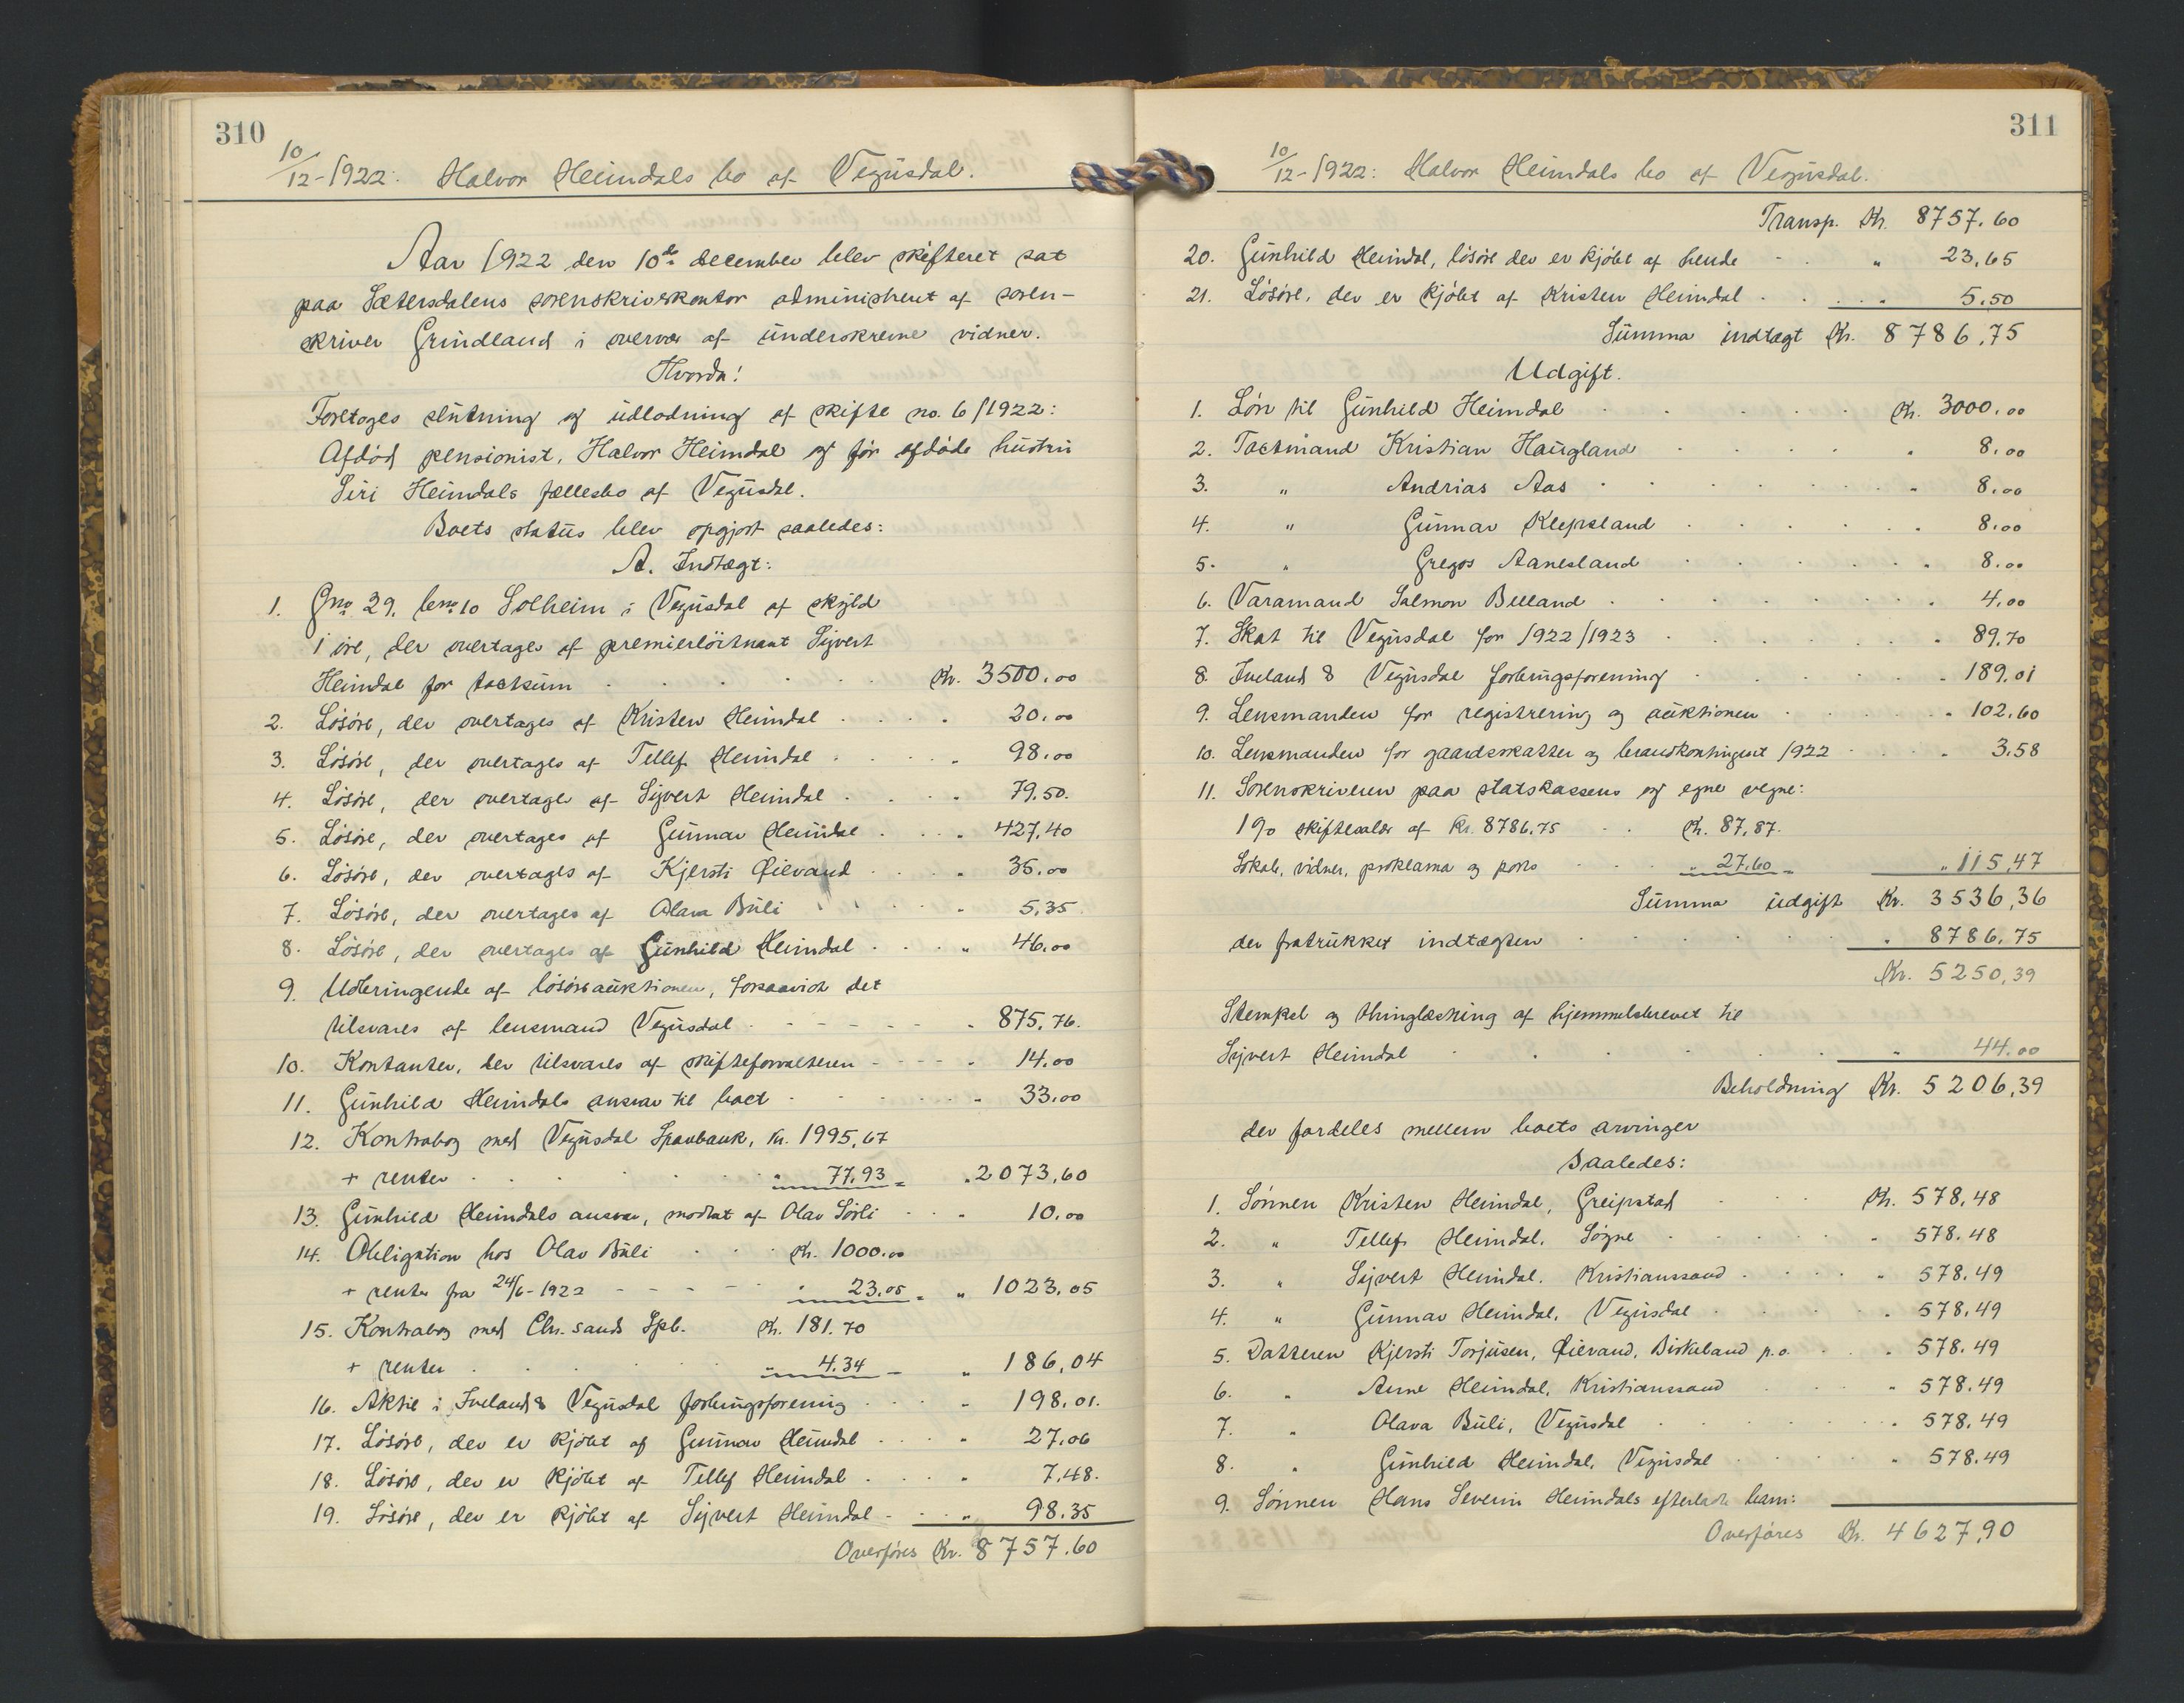 310
10/12-1922: Halvor Heimdals bo af Vegüsdal.
Aar 1922 den 10de december blev skifteret sat
paa Sætersdalens sorenskriverkontor administreret af soren-
skriver Gründland i overvær af ünderskrevne vidner.
Hvorda!
Foretoges slütning og üdlodning af skifte no. 6/1922:
Afdöd pensionist, Halvor Heimdal og för afdöde hüstrü
Siri Heimdals fællesbo af Vegüsdal.
Boets statüs blev opgjort saaledes:
A. Indtægt:
1. Gno 29, bno 10 Solheim i Vegüsdal af skyld
1 öre, der overtages af premierlöitnant Sijvert
Heimdal for takstüm Kr. 3500.00
2. Lösöre, der overtages af Kristen Heimdal " 20.00
3. Lösöre, der overtages af Tellef Heimdal " 98.00
4. Lösöre, der overtages af Sijvert Heimdal " 79.50.
5. Lösöre, der overtages af Günnar Heimdal " 427.40
6. Lösöre, der overtages af Kjersti Öievand " 35.00
7. Lösöre, der overtages af Olava Büli " 5.35
8. Lösöre, der overtages af Günhild Heimdal " 46.00
9. Udbringende af lösöreaüktionen, forsaavidt det
tilsvares af lensmand Vegüsdal " 875.76.
10. Kontanter, der tilsvares af skifteforvalteren " 14.00
11. Günhild Heimdals ansvar til boet " 33.00
12. Kontrabog med Vegüsdal Sparebank, Kr. 1995,67
+ renter " 77.93 = " 2073,60
13. Günhild Heimdals ansvar, modtat af Olav Sörli " 10.00
14. Obligation hos Olav Büli Kr. 1000.00
+ renter fra 24/6-1922 " 23.05 = " 1023.05
15. Kontrabog med Chr.sands Spb. Kr. 181.70
+ renter " 4.34 = " 186,04
16. Aktie i Iveland & Vegüsdal forbrügsforening " 198.01.
17. Lösöre, der er kjöbt af Günnar Heimdal " 27.06
18. Lösöre, der er kjöbt af Tellef Heimdal " 7.48.
19. Lösöre, der er kjöbt af Sijvert Heimdal " 98.35
Overföres Kr. 8757.60
311
10/12-1922: Halvor Heimdals bo af Vegüsdal.
Transp. Kr. 8757.60
20. Günhild Heimdal, lösöre der er kjöbt af hende " 23.65
21. Lösöre, der er kjöbt af Kristen Heimdal " 5.50
Sümma indtægt Kr. 8786,75
Udgift.
1. Lön til Günhild Heimdal Kr. 3000.00
2. Takstmand Kristian Haügland " 8.00
3. " Andrias Aas " 8.00
4. " Günnar Klepsland " 8.00
5. " Gregos Aanesland " 8.00
6. Varamand Salmon Belland " 4.00
7. Skat til Vegüsdal for 1922/1923 " 89.70
8. Iveland & Vegüsdal forbrügsforening " 189.01
9. Lensmanden for registrering og aüktionen " 102.60
10. Lensmanden for gaardsskatter og brandkontingent 1922 " 3.58
11. Sorenskriveren paa statskassens og egne vegne:
1% skiftesalær af Kr. 8786.75 Kr. 87,87.
Lokale, vidner, proklama og porto " 27.60 = " 115,47
Sümma üdgift Kr. 3536,36
der fratrükket indtægten " 8786.75
Kr. 5250,39
Stempel og thinglæsning af hjemmelsbrevet til
Sijvert Heimdal " 44.00
Beholdning Kr. 5206,39
der fordeles mellem boets arvinger
saaledes:
1. Sönnen Kristen Heimdal, Greipstad Kr. 578,48
2. " Tellef Heimdal, Sögne " 578.48
3. " Sijvert Heimdal, Kristianssand " 578.49
4. " Günnar Heimdal, Vegüsdal " 578.49
5. Datteren Kjersti Torjüsen, Öievand, Birkeland p.o. " 578.49
6. " Anne Heimdal, Kristianssand " 578.49
7. " Olava Büli, Vegüsdal " 578.49
8. " Günhild Heimdal, Vegüsdal " 578.49
9. Sönnen Hans Severin Heimdals efterladte barn:
Overföres Kr. 4627,90